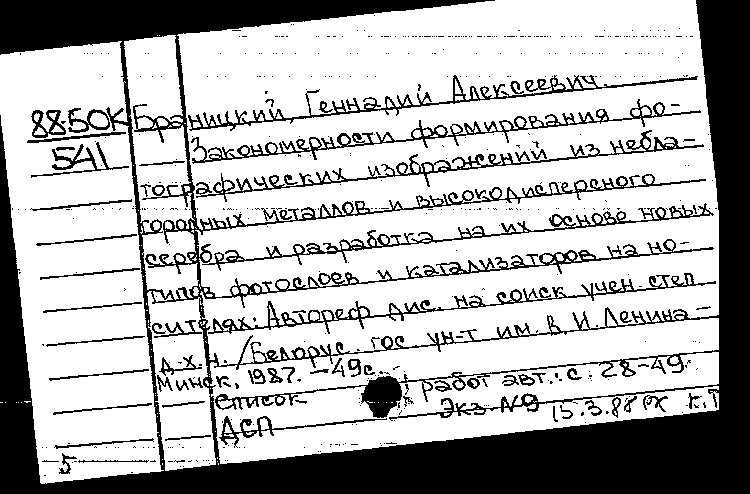 88-50К
541
Браницкий, Геннадий Алексеевич.
Закономерности формирования фо-
тографических изображений из небла-
городных металлов и высокодисперсного
серебра и разработка на их основе новых
типов фотослоев и катализаторов на но-
сителях: Автореф дис. на соиск учен. степ
д-х.н. /Белорус. гос. ун-т им. В. И. Ленина –
Минск, 1987. – 49с.
Список работ авт.: с. 28-49.
ДСП Экз. N9 15.3.88 РЖ К.Т
5